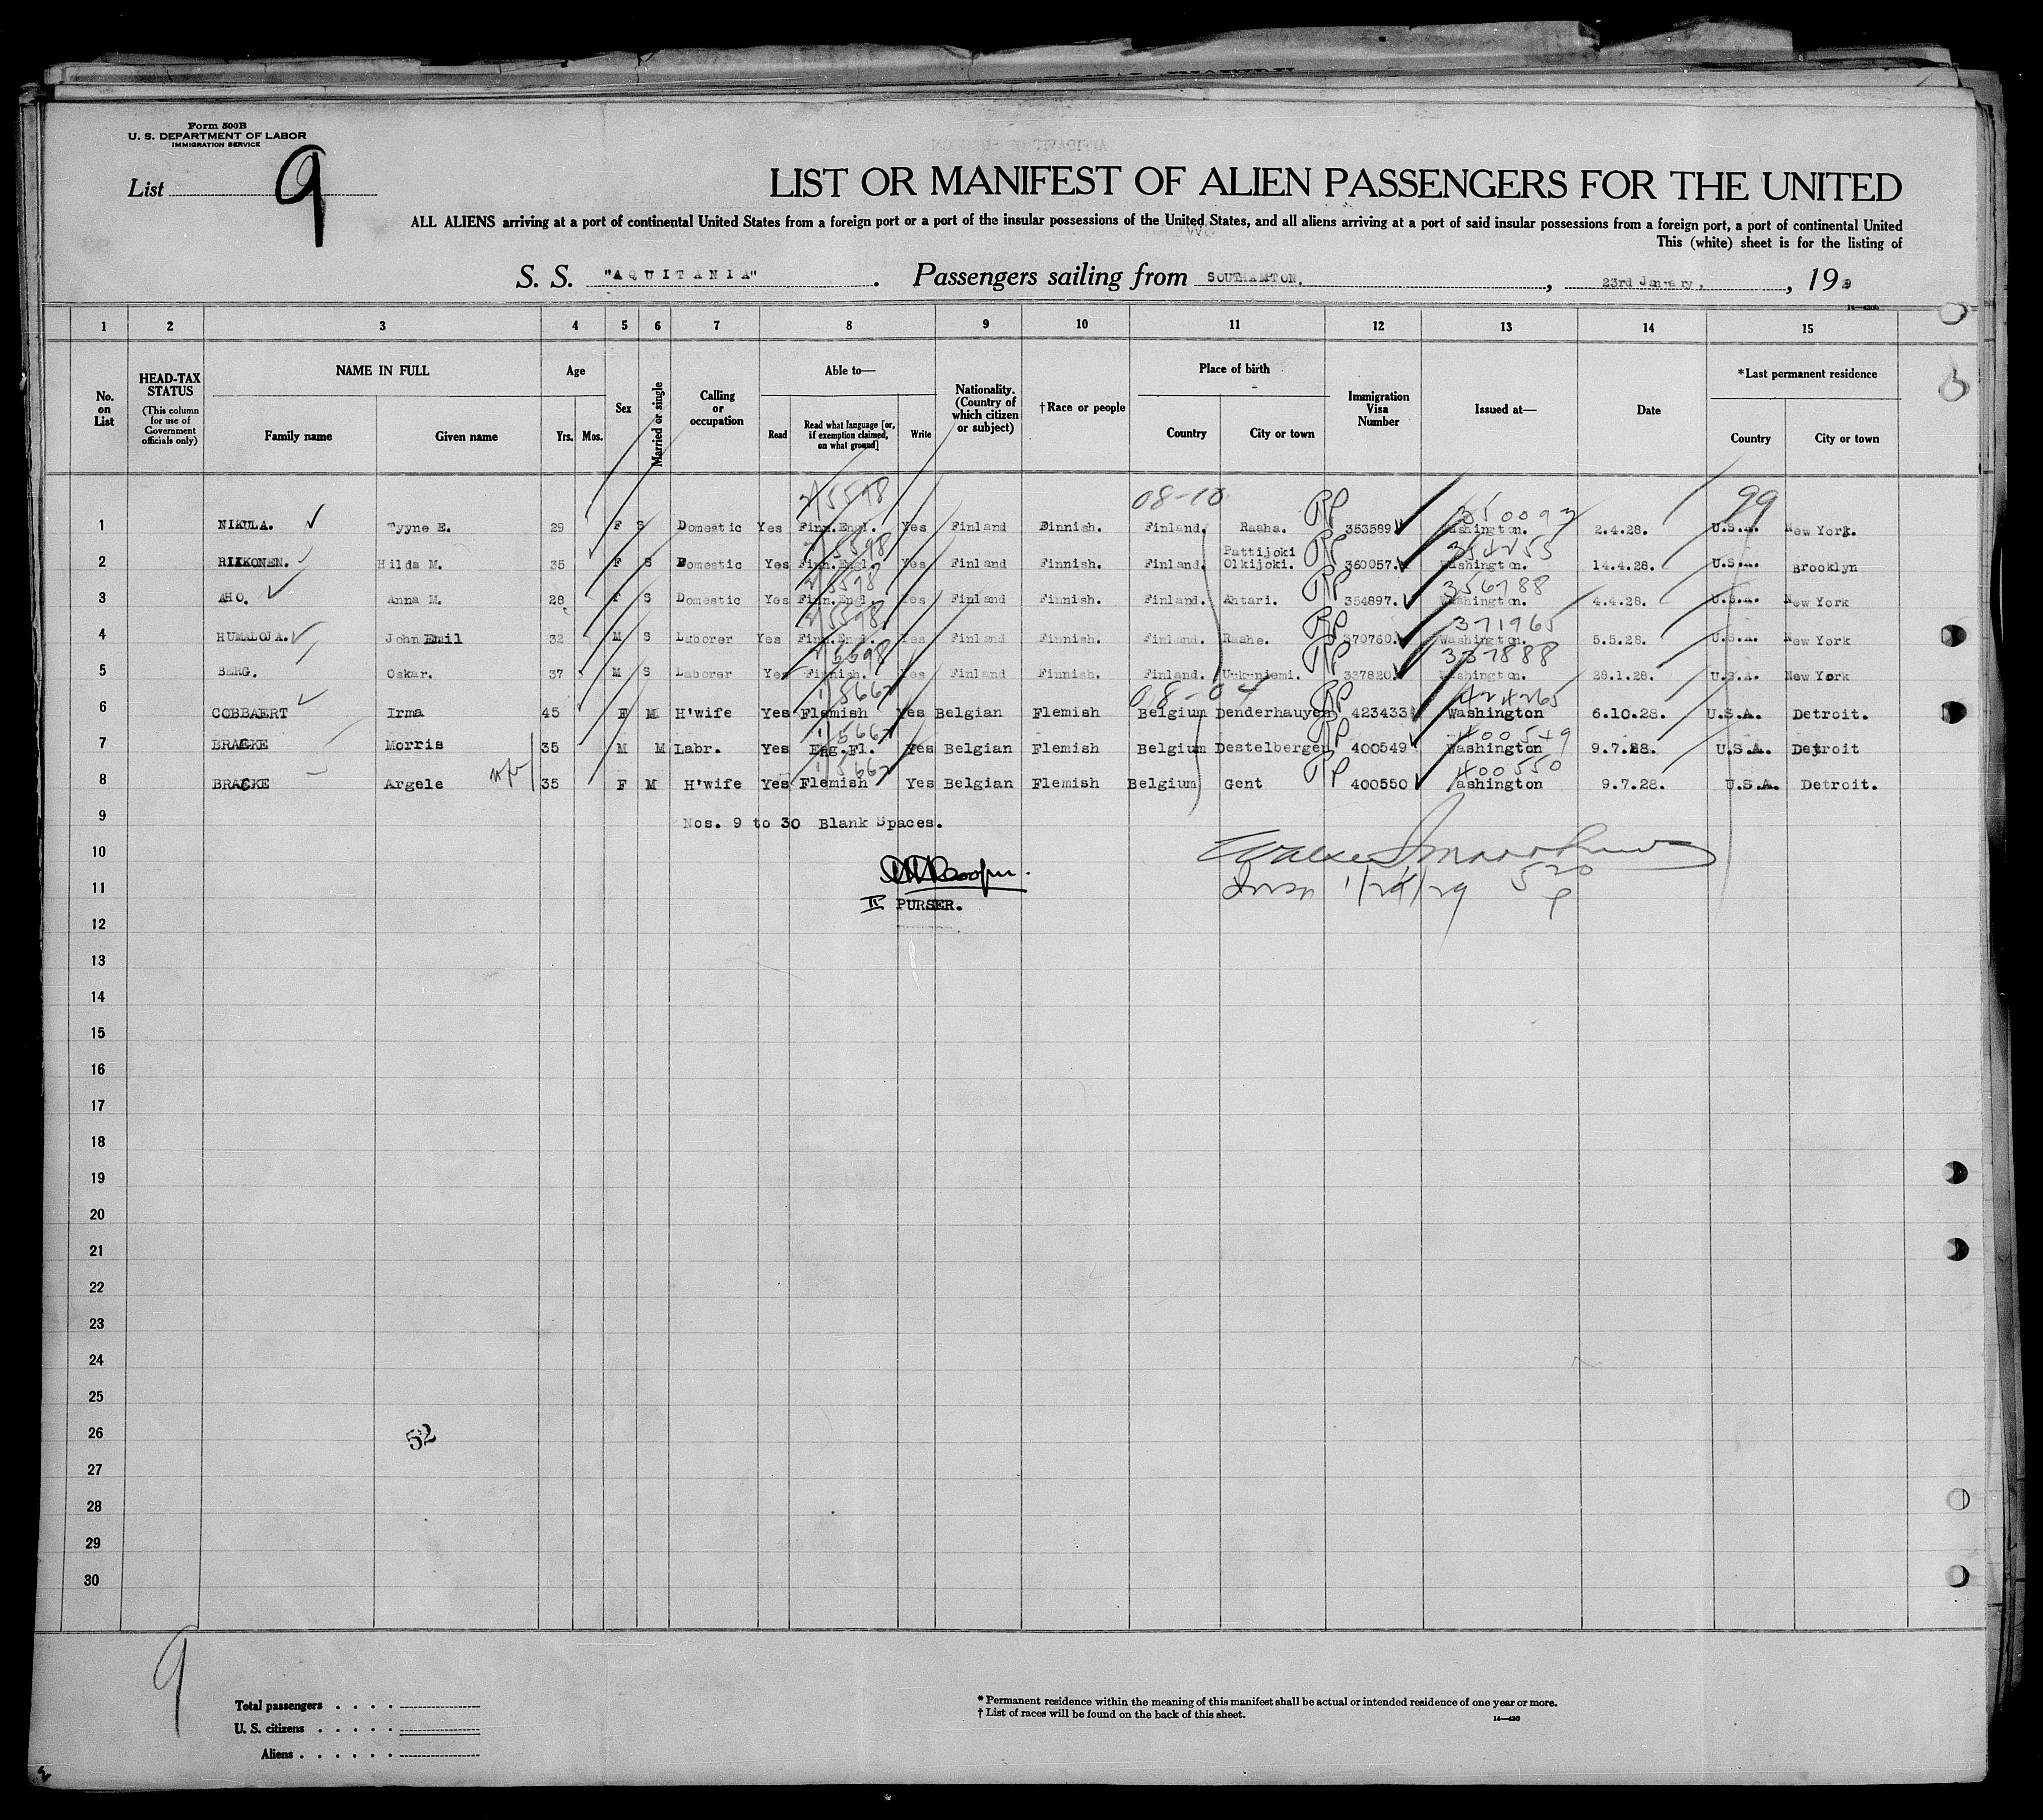 Form 500B
U. S. DEPARTMENT OF LABOR
IMMIGRATION SERVICE
List 9
LIST OR MANIFEST OF ALIEN PASSENGERS FOR THE UNITED
ALL ALIENS arriving at a port of continental United States from a foreign port or a port of the insular possessions of the United States, and all aliens arriving at a port of said insular possessions from a foreign port, a port of continental United
This (white) sheet is for the listing of
S. S. "AQUITANIA" . Passengers sailing from SOUTHAMPTON. , 23rd January. , 19 9
14—430b
1 2 3 4 5 6 7 8 9 10 11 12 13 14 15
No. on List
HEAD-TAX STATUS (This column for use of Government officials only)
NAME IN FULL Family name Given name
Age Yrs. Mos.
Sex
Married or single
Calling or occupation
Able to— Read Read what language [or, if exemption claimed, on what ground] Write
Nationality. (Country of which citizen or subject)
†Race or people
Place of birth Country City or town
Immigration Visa Number
Issued at—
Date
*Last permanent residence Country City or town
2/5598 08-10 RP 350093 99
1 NIKULA. Tyyne E. 29 F S Domestic Yes Finn.Engl. Yes Finland Finnish. Finland. Raahe. 353589 Washington. 2.4.28. U.S.A. New York.
2/5598 Pattijoki RP 354255
2 RIIKONEN. Hilda M. 35 F S Domestic Yes Finn.Engl. Yes Finland Finnish. Finland. Olkijoki. 360057. Washington. 14.4.28. U.S.A. Brooklyn
2/5598 RP 356788
3 AHO. Anna M. 28 F S Domestic Yes Finn.Engl. Yes Finland Finnish. Finland. Ahtari. 354897. Washington. 4.4.28. U.S.A. New York
2/5598 RP 371965
4 HUMALOJA. John Emil 32 M S Laborer Yes Finn.Engl. Yes Finland Finnish. Finland. Raahe. 370760. Washington. 5.5.28. U.S.A. New York
2/5598 RP 337888
5 BERG. Oskar. 37 M S Laborer Yes Finnish. Yes Finland Finnish. Finland. Uukuniemi. 337820. Washington. 28.1.28. U.S.A. New York
1/5667 08-04 RP 424265
6 COBBAERT Irma 45 F M H'wife Yes Flemish Yes Belgian Flemish Belgium Denderhauyen 423433 Washington 6.10.28. U.S.A. Detroit.
1/5667 RP 400549
7 BRACKE Morris 35 M M Labr. Yes Eng.Fl. Yes Belgian Flemish Belgium Destelbergen 400549 Washington 9.7.28. U.S.A. Detroit
1/5667 RP 400550
8 BRACKE Argele 35 F M H'wife Yes Flemish Yes Belgian Flemish Belgium Gent 400550 ashington 9.7.28. U.S.A. Detroit.
9 Nos. 9 to 30 Blank Spaces.
10
11 1/24/29 520
II PURSER.
12
13
14
15
16
17
18
19
20
21
22
23
24
25
26 52
27
28
29
30
9
Total passengers
U. S. citizens
Aliens
* Permanent residence within the meaning of this manifest shall be actual or intended residence of one year or more.
† List of races will be found on the back of this sheet.
14—430